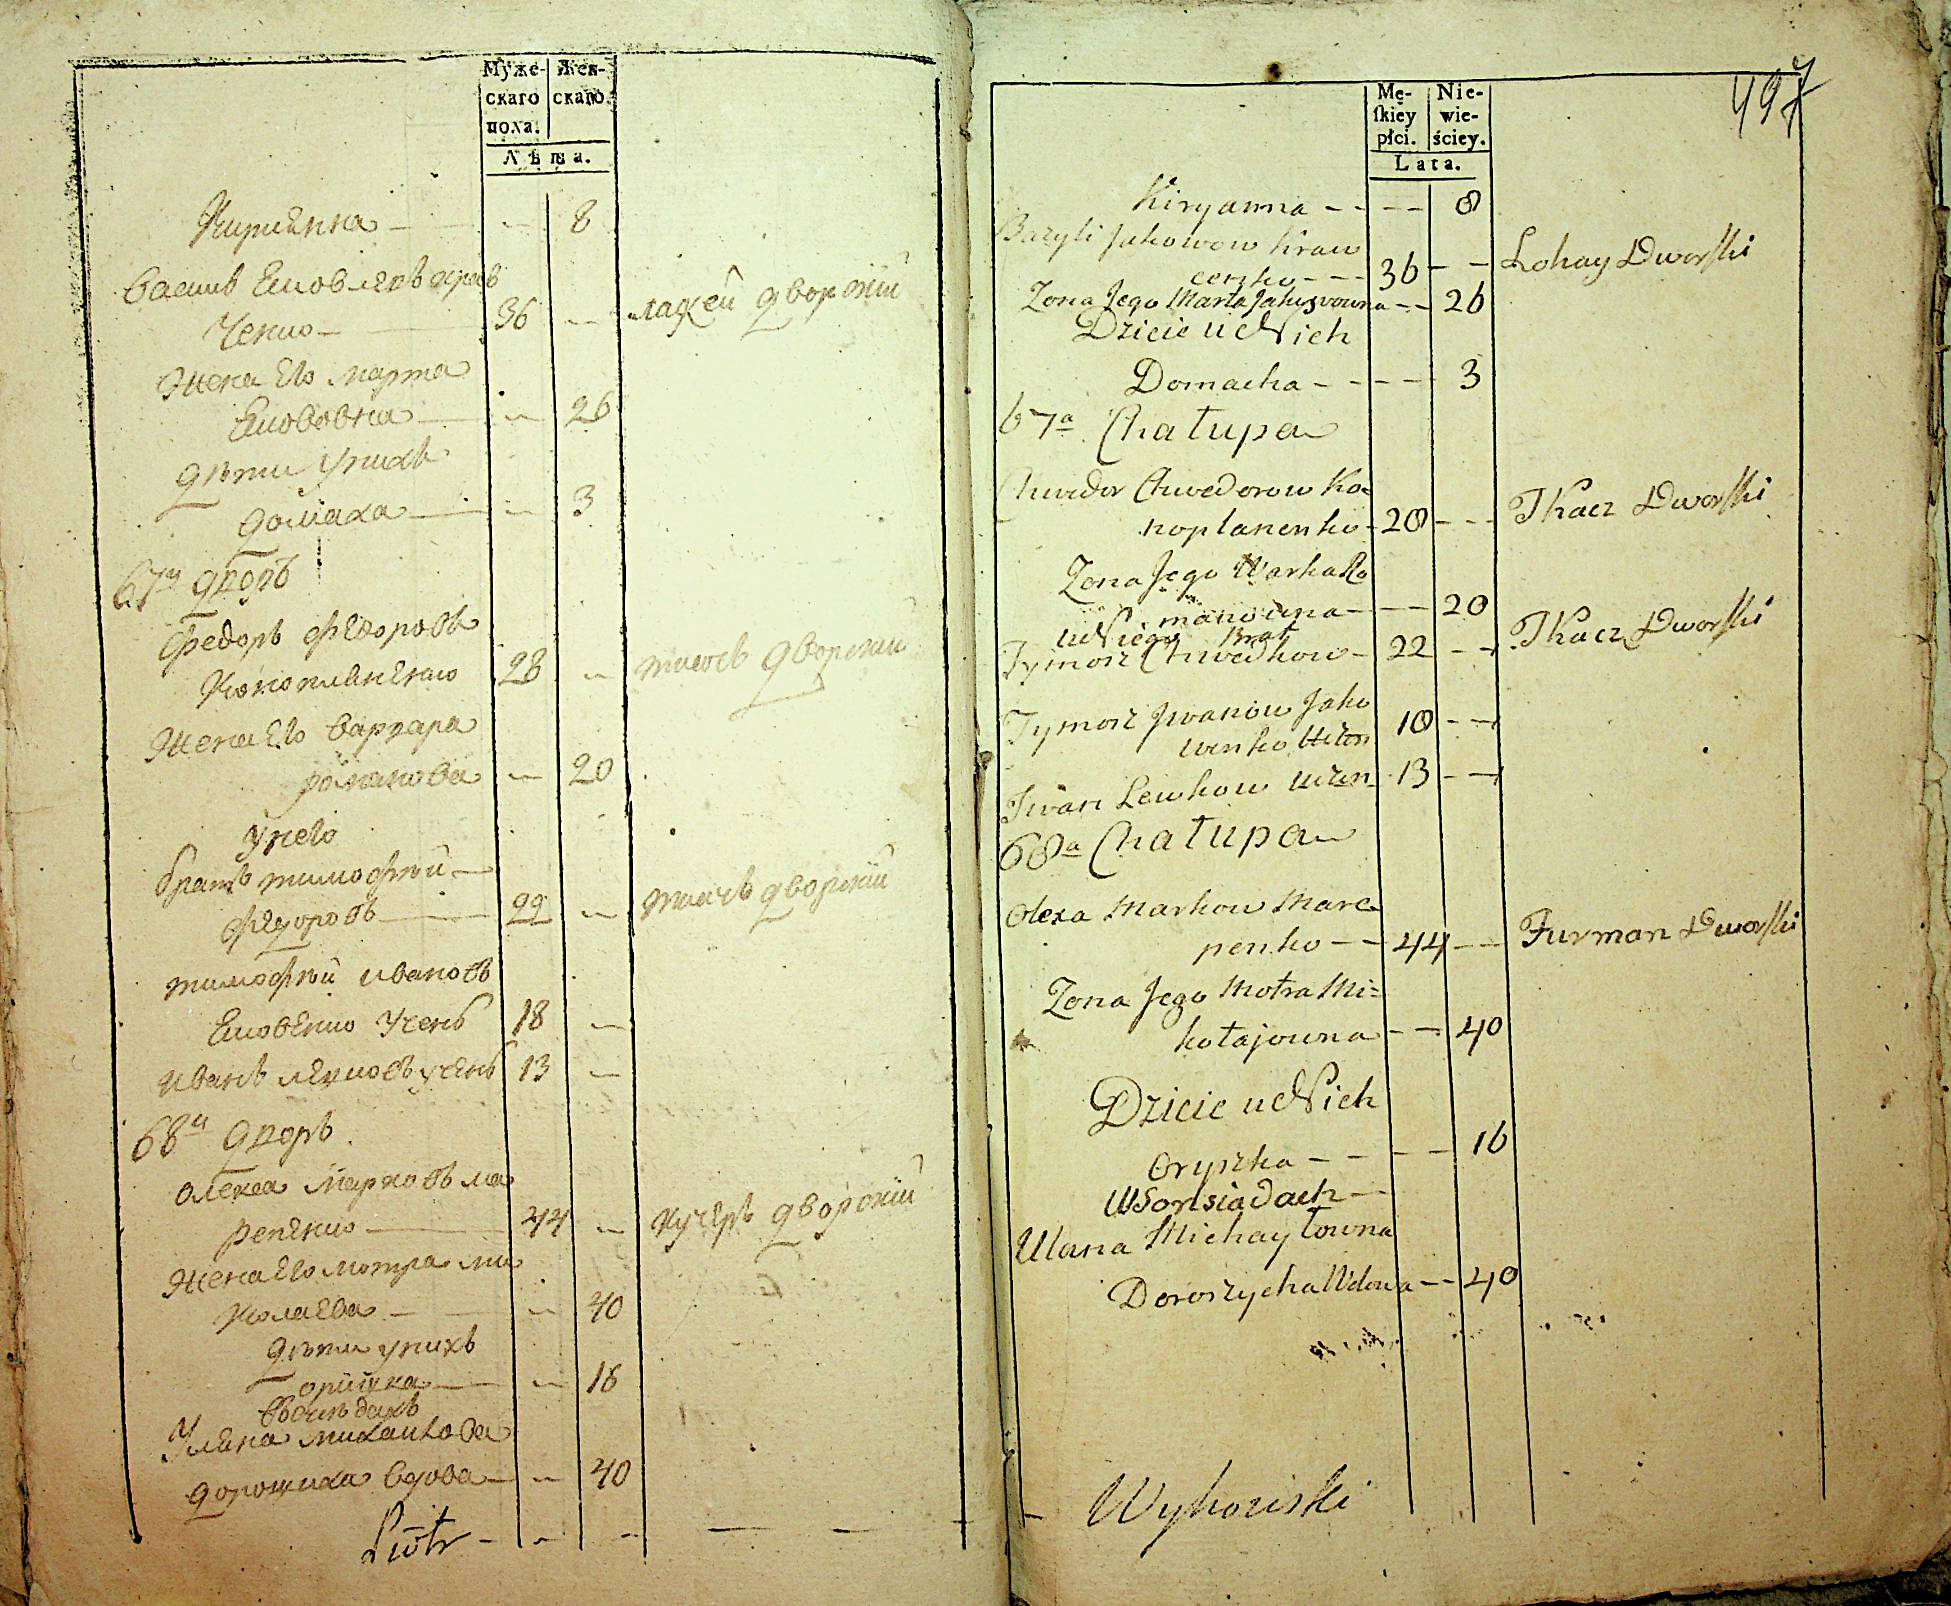 Муже-
скаго
пола.
Жен-
скаго.
Лѣта.
Кирiяна — — 8
Василь Яковлевъ Крав
ченко — 36 — лакей дворскiй
Жена Его Марта
Якововна — — 26
Дѣти У нихъ
Домаха — — 3
67й Дворъ
Федоръ Федоровъ
КоноплянЕнко 28 — ткачь Дворскiй
Жена Его Варвара
романова — 20
У него
братъ тимофѣй —
Федоровъ — 22 — ткачь дворскiй
тимофѣй ивановъ
Яковенко Учень 18 —
иванъ левковъ учень 13 —
68й Дворъ
Олекса Марковъ Ма
репенко — 44 — Кучеръ дворскiй
Жена Его мотра ми
колаева — — 40
Дѣти у нихъ
оришка — — 16
Уляна михайлова
дорошиха вдова — — 40
Piotr - - - — — —
497
Mę-
ſkiey
płci.
Nie-
wie-
ściey.
Lata.
Kiryanna - - - - 8
Bazyli Jakowow Kraw
cenko - - - 36 - - Lokay Dworſki
Zona Jego Marta Jakowowna - - 26
Dzieie u Nich
Domacha - - - - 3
67a Chałupa
Chwedor Chwedorow Ko=
noplanenko - 28 - - - Tkacz Dworſki
Zona Jego Warka Ro
manowna - - - 20
u Niego Brat
Tymosz Chwedkow - 22 - - Tkacz Dworſki
Tymosz Jwanow Jako
wenko Uczen 18 - -
Jwan Lewkow uczen 13 - -
68a Chałupa
Olexa Markow Mare
penko - - 44 - - Furman Dworſki
Zona Jego Motra Mi=
kołajowna - - - 40
Dzieie u Nich
Oryszka - - - - 16
W Sonsiadach -
Ulana Michayłowna
Doroszycha Wdowa - - 40
- Wykowski